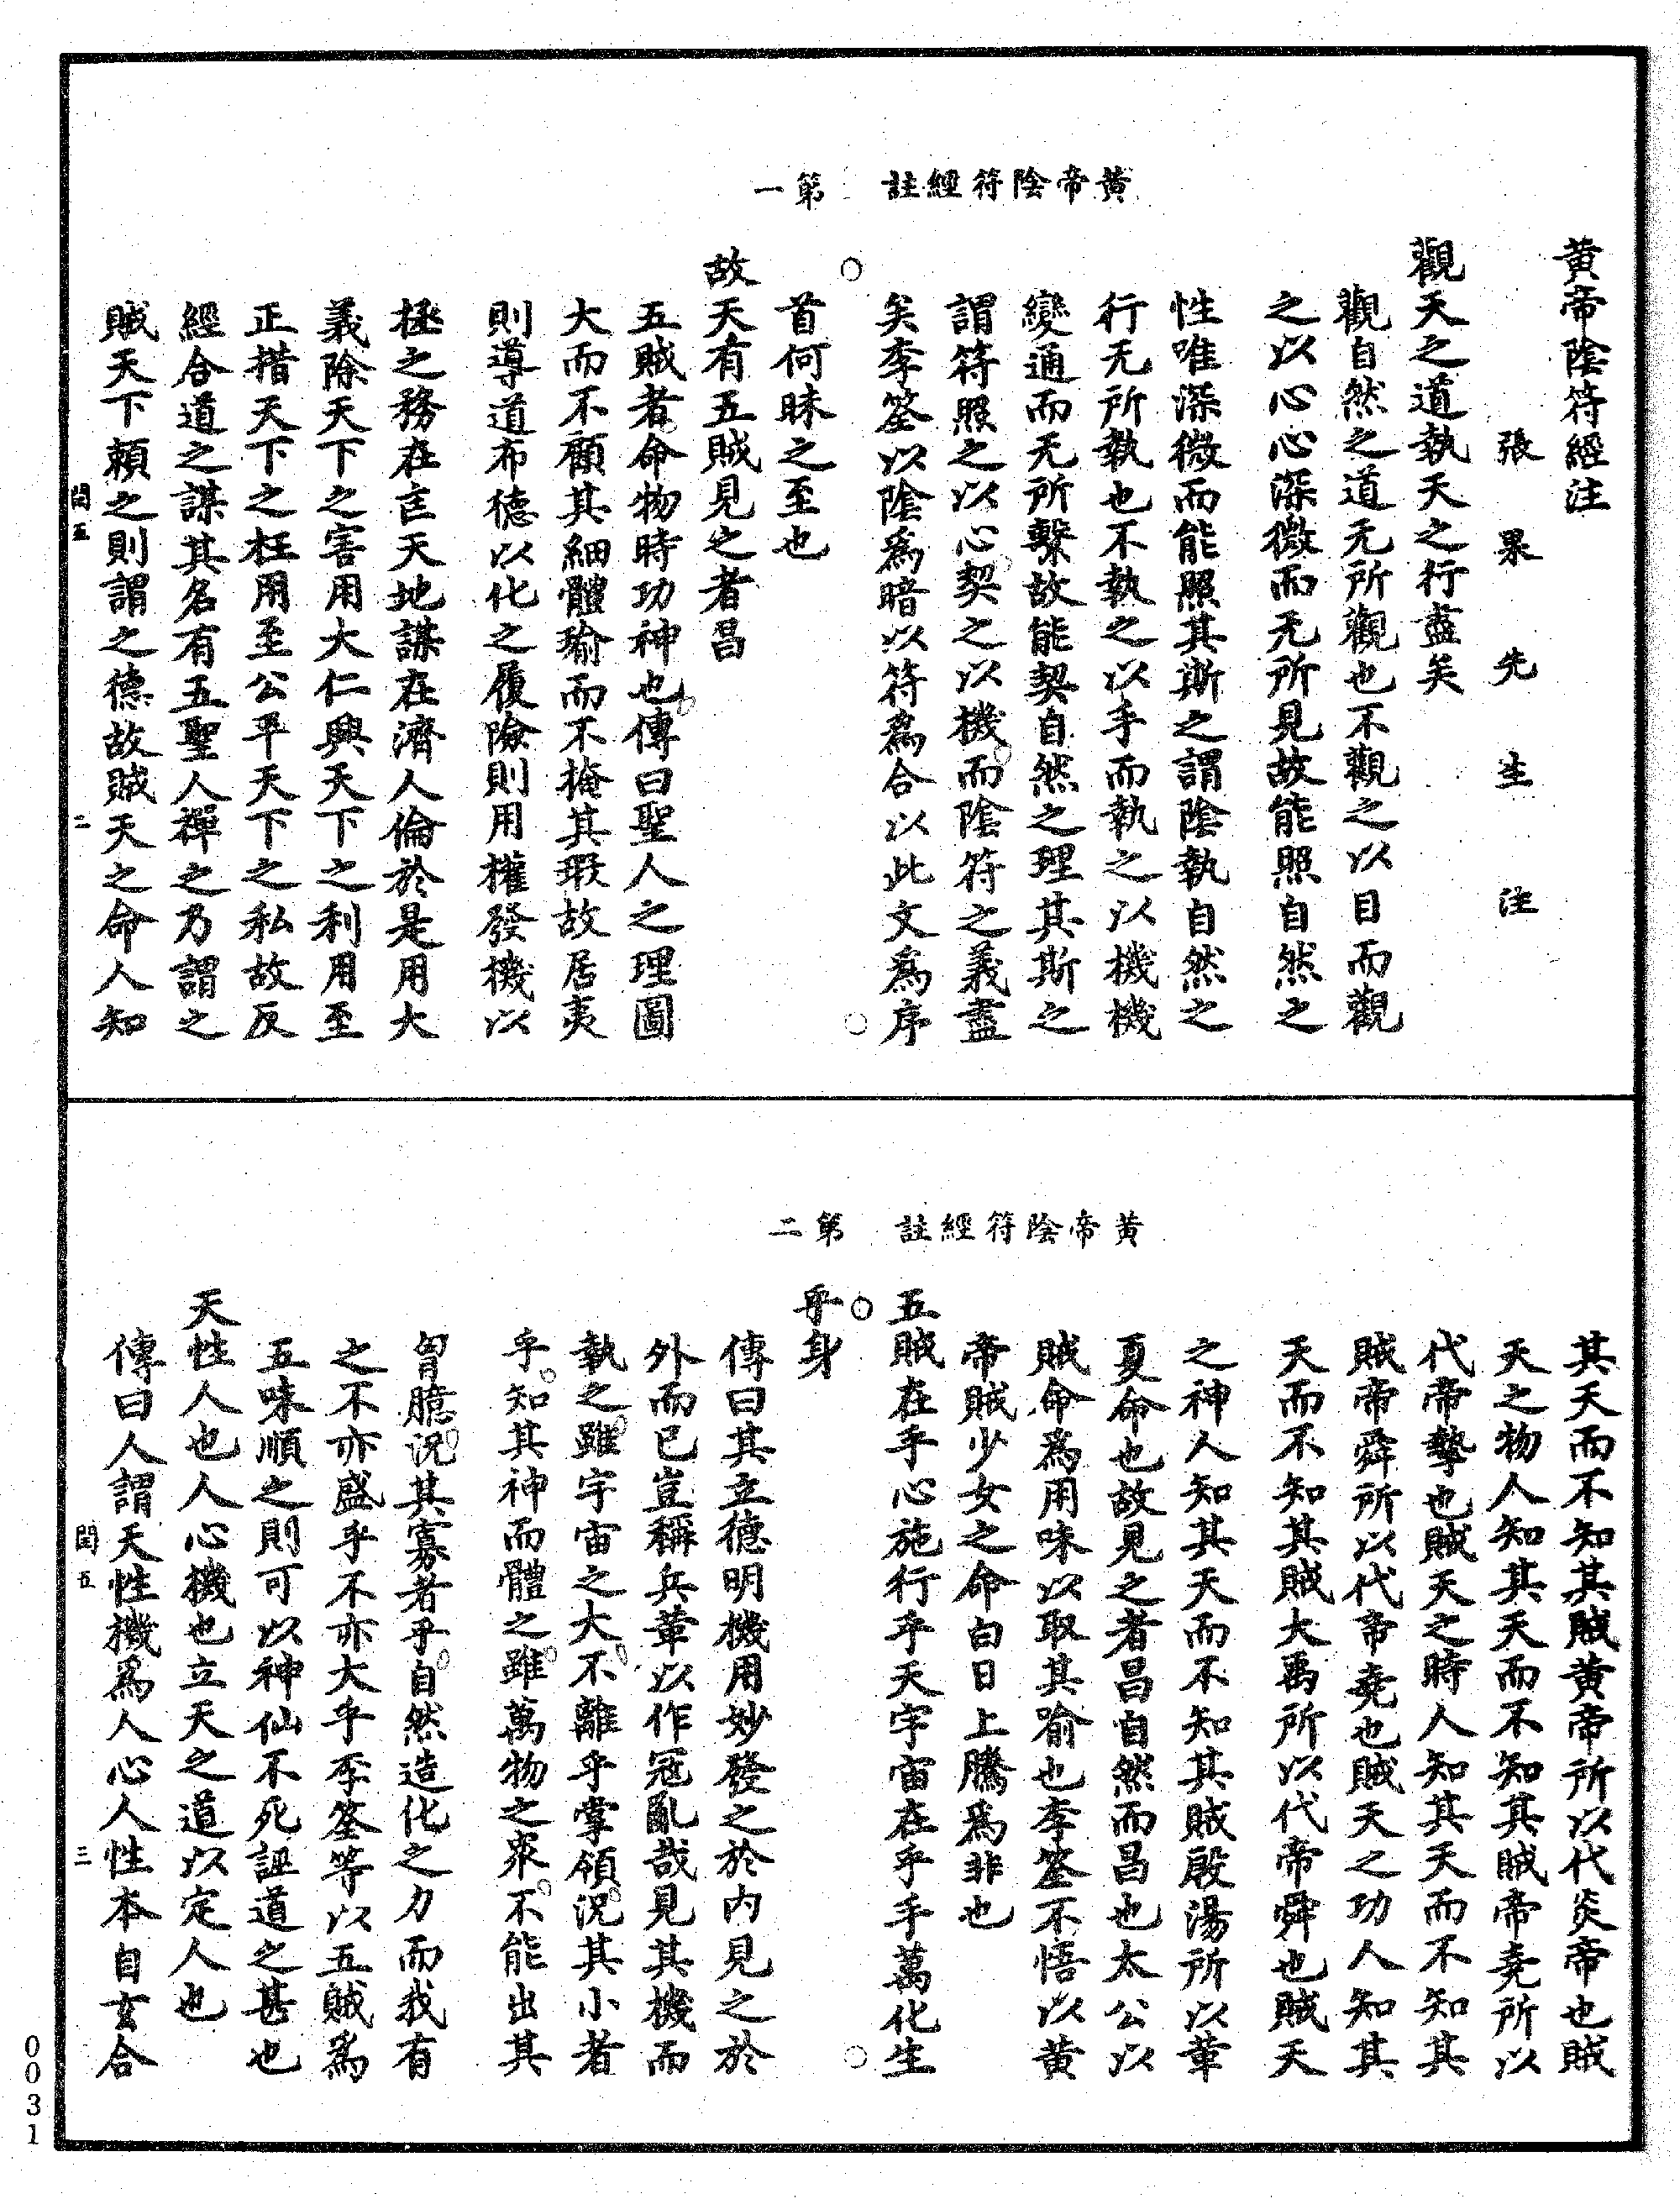 黄帝陰符經註　第一
黄帝陰符經注
張果先生注
觀天之道執天之行盡矣
觀自然之道无所觀也不觀之以目而觀
之以心心深微而无所見故能照自然之
性唯深微而能照其斯之謂陰執自然之
行无所執也不執之以手而執之以機機
變通而无所繫故能契自然之理其斯之
謂符照之以心契之以機而陰符之義盡
矣李筌以陰爲暗以符爲合以此文爲序
首何昧之至也
故天有五賊見之者昌
五賊者命物時功神也傳曰聖人之理圖
大而不顧其細體瑜而不掩其瑕故居夷
則導道布德以化之履險則用權發機以
拯之務在匡天地謀在濟人倫於是用大
義除天下之害用大仁興天下之利用至
正措天下之枉用至公平天下之私故反
經合道之謀其名有五聖人禪之乃謂之
賊天下頼之則謂之德故賊天之命人知
閏五
二
黄帝陰符經註　第二
其天而不知其賊黄帝所以代炎帝也賊
天之物人知其天而不知其賊帝堯所以
代帝摯也賊天之時人知其天而不知其
賊帝舜所以代帝堯也賊天之功人知其
天而不知其賊大禹所以代帝舜也賊天
之神人知其天而不知其賊殷湯所以革
夏命也故見之者昌自然而昌也太公以
賊命爲用味以取其喻也李筌不悟以黄
帝賊少女之命白日上騰爲非也
五賊在乎心施行乎天宇宙在乎手萬化生
乎身
傳曰其立德明機用妙發之於内見之於
外而已豈稱兵革以作冦亂哉見其機而
執之雖宇宙之大不離乎掌領況其小者
乎知其神而體之雖萬物之衆不能出其
胷臆況其寡者乎自然造化之力而我有
之不亦盛乎不亦大乎李筌等以五賊爲
五味順之則可以神仙不死誣道之甚也
天性人也人心機也立天之道以定人也
傳曰人謂天性機爲人心人性本自玄合
閏五
三
0031